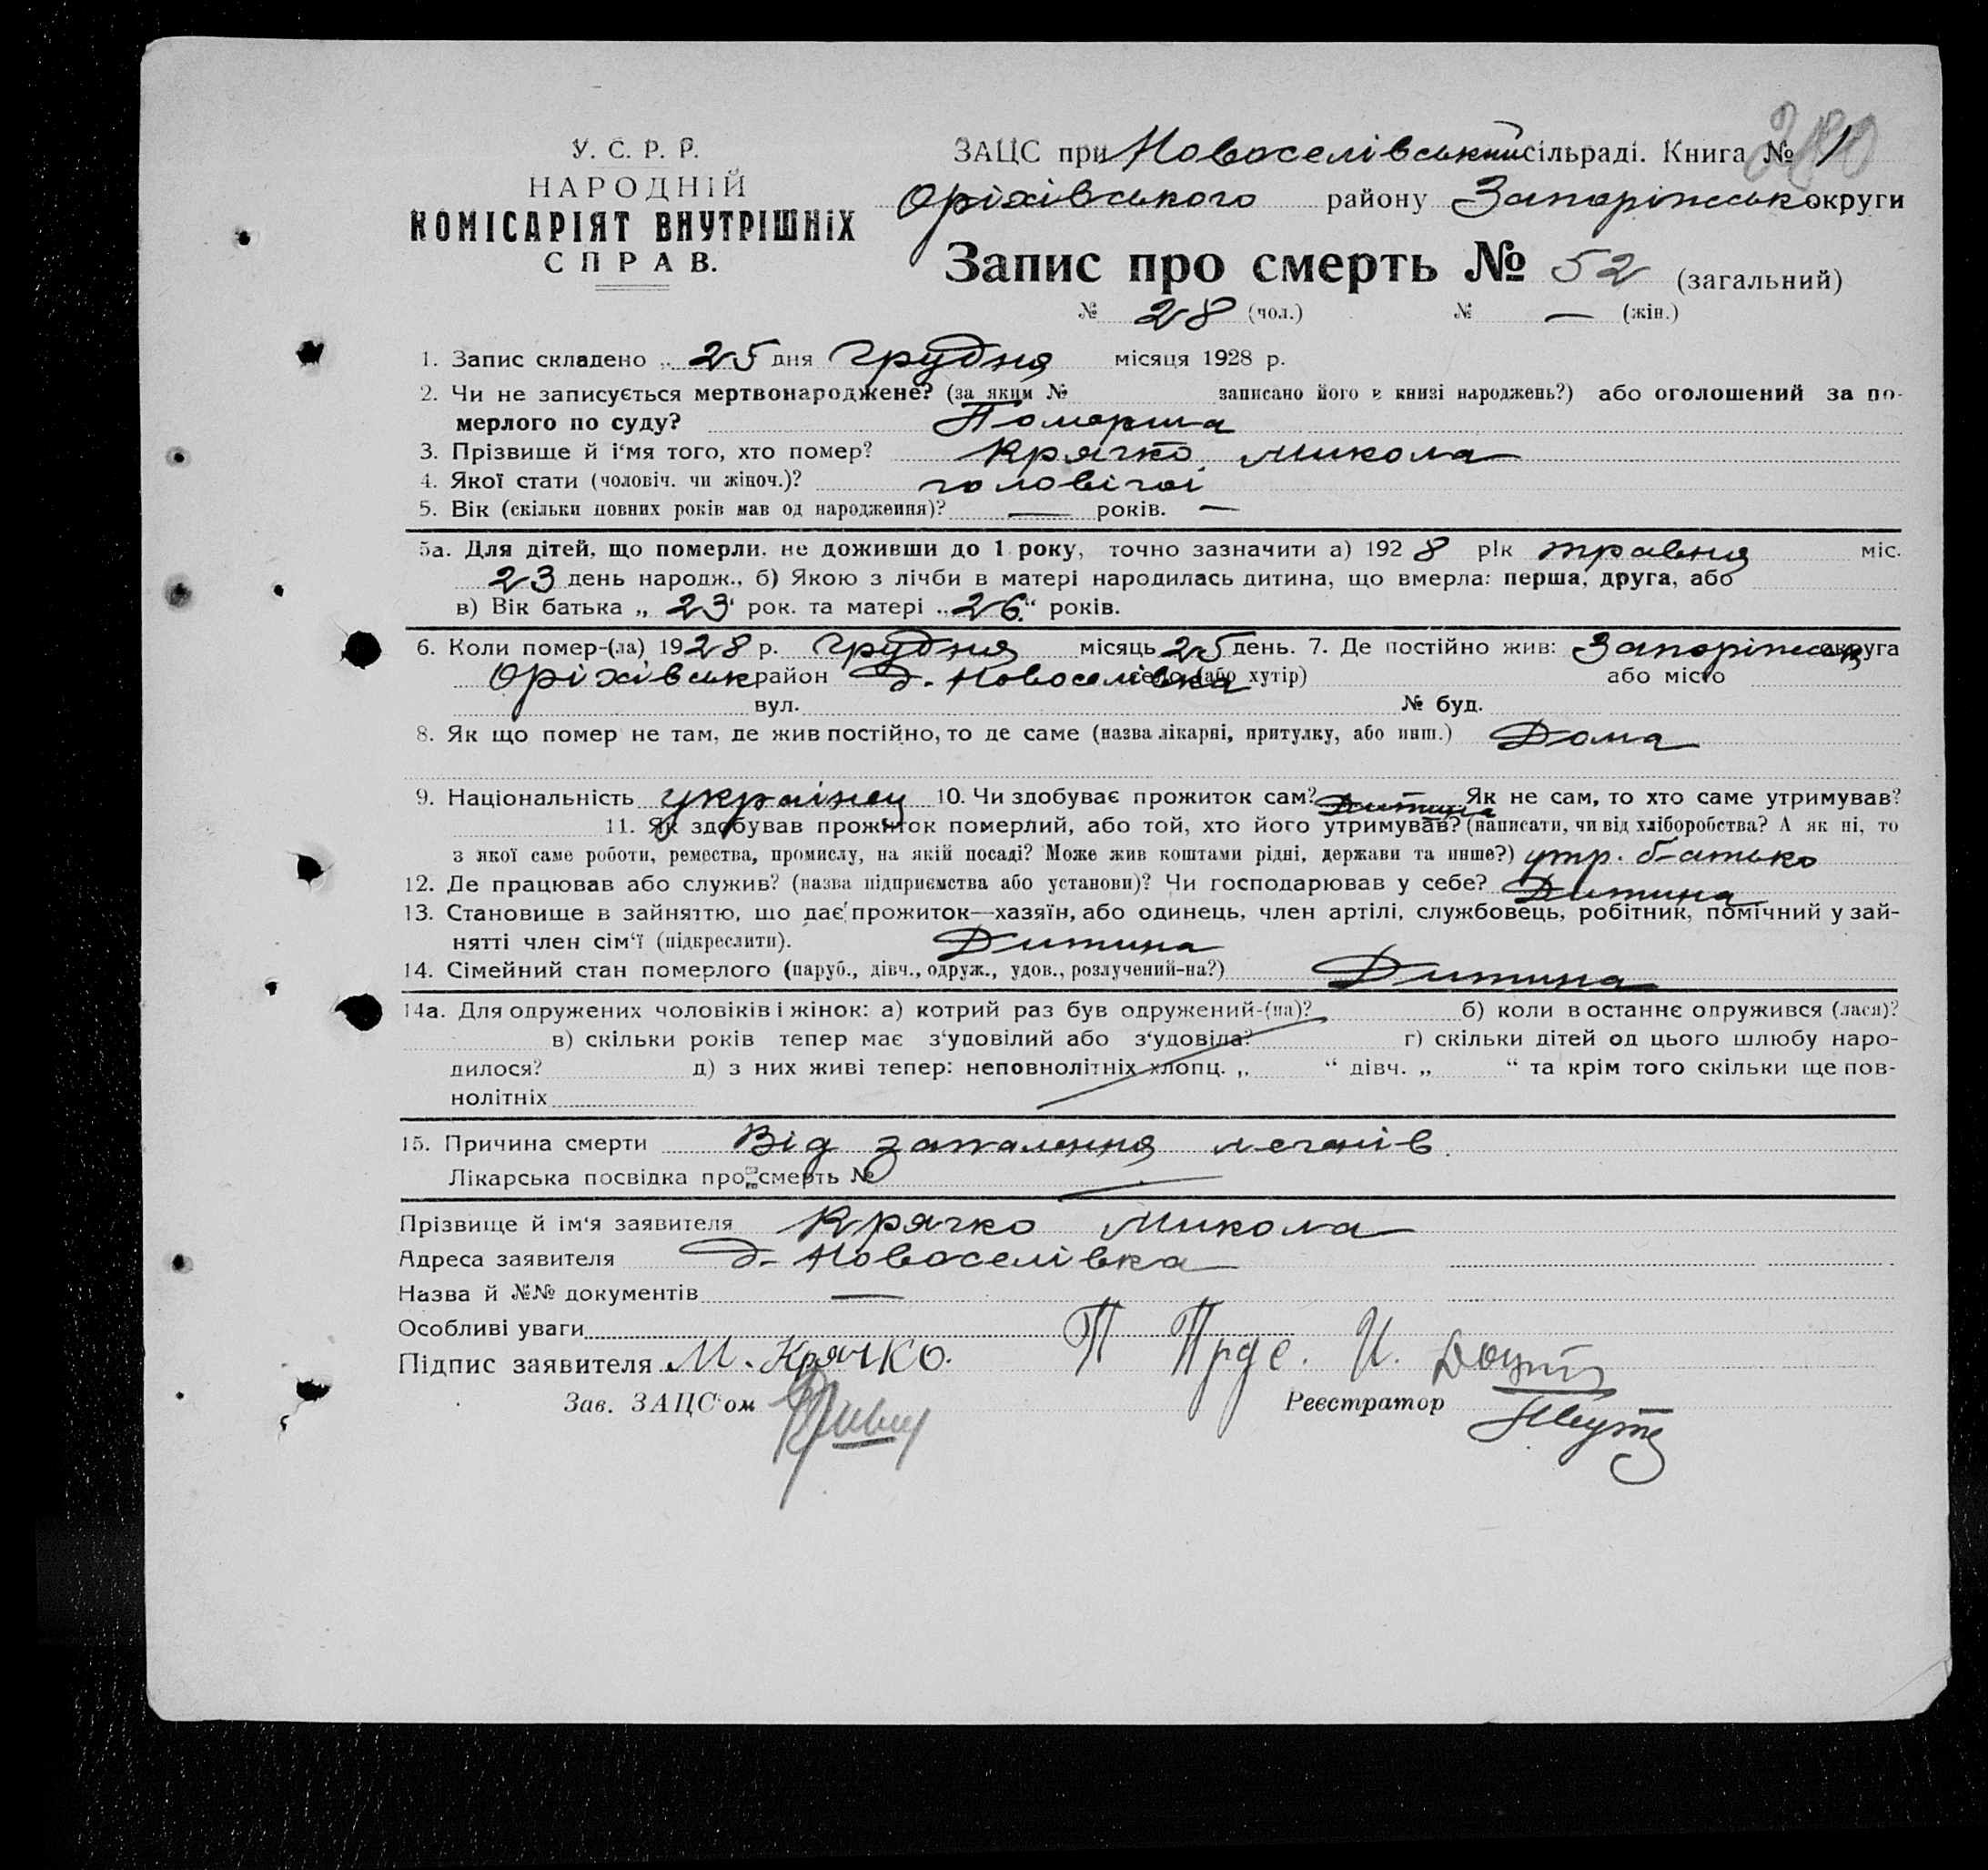 У. С. Р. Р.
НАРОДНІЙ
КОМІСАРІЯТ ВНУТРІШНІХ
СПРАВ.
ЗАЦС при Новоселівський сільраді. Книга № 1
280
Оріхівського району Запоріжськ округи
Запис про смерть № 52 (загальний)
№ 28 (чол.) № — (жін.)
1. Запис складено „ 25 дня грудня місяця 1928 р.
2. Чи не записується мертвонароджене? (за яким № записано його в книзі народжень?) або оголошений за по-
мерлого по суду? Померша
3. Прізвище й і‘мя того, хто помер? Крячко Микола
4. Якої стати (чоловіч. чи жіноч.)? чоловічої
5. Вік (скільки повних років мав од народження)? — років. —
5а. Для дітей, що померли, не доживши до 1 року, точно зазначити а) 1928 рік травня міс.
23 день народж., б) Якою з лічби в матері народилась дитина, що вмерла: перша, друга, або
в) Вік батька „ 23 “ рок. та матері „ 26 “ років.
6. Коли помер-(ла) 1928 р. грудня місяць 25 день. 7. Де постійно жив: Запоріжськ округа
Оріхівськ район д. Новоселівка село (або хутір) або місто
вул. № буд.
8. Як що помер не там, де жив постійно, то де саме (назва лікарні, притулку, або инш.) Дома
9. Національність українец 10. Чи здобуває прожиток сам? Дитина Як не сам, то хто саме утримував?
11. Як здобував прожиток померлий, або той, хто його утримував? (написати, чи від хліборобства? А як ні, то
з якої саме роботи, ремества, промислу, на якій посаді? Може жив коштами рідні, держави та инше?) утр. батько
12. Де працював або служив? (назва підприємства або установи)? Чи господарював у себе? Дитина
13. Становище в зайняттю, що дає прожиток—хазяїн, або одинець, член артілі, службовець, робітник, помічний у зай-
нятті член сім‘ї (підкреслити). Дитина
14. Сімейний стан померлого (паруб., дівч., одруж., удов., розлучений-на?) Дитина
14а. Для одружених чоловіків і жінок: а) котрий раз був одружений-(на)? б) коли в останнє одружився (лася)?
в) скільки років тепер має з‘удовілий або з‘удовіла? г) скільки дітей од цього шлюбу наро-
дилося? д) з них живі тепер: неповнолітніх хлопц. „ “ дівч. „ “ та крім того скільки ще пов-
нолітніх
15. Причина смерти Від запалення легенів.
Лікарська посвідка про смерть №
Прізвище й ім‘я заявителя Крячко Микола
Адреса заявителя д. Новоселівка
Назва й №№ документів —
Особливі уваги
Підпис заявителя М. Крячко.
Зав. ЗАЦС‘ом Реєстратор